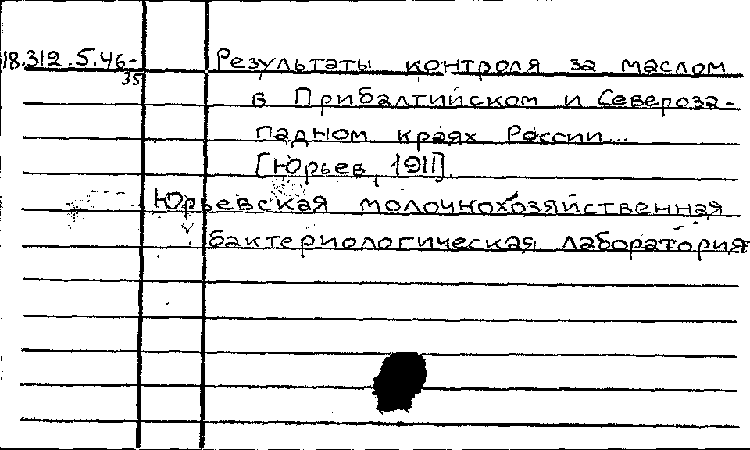 18.312.5.46- Результаты контроля за маслом
35
в Прибалтийском и Североза-
падном краях России...
[Юрьев, 1911].
Юрьевская молочнохозяйственная
бактериологическая лаборатория